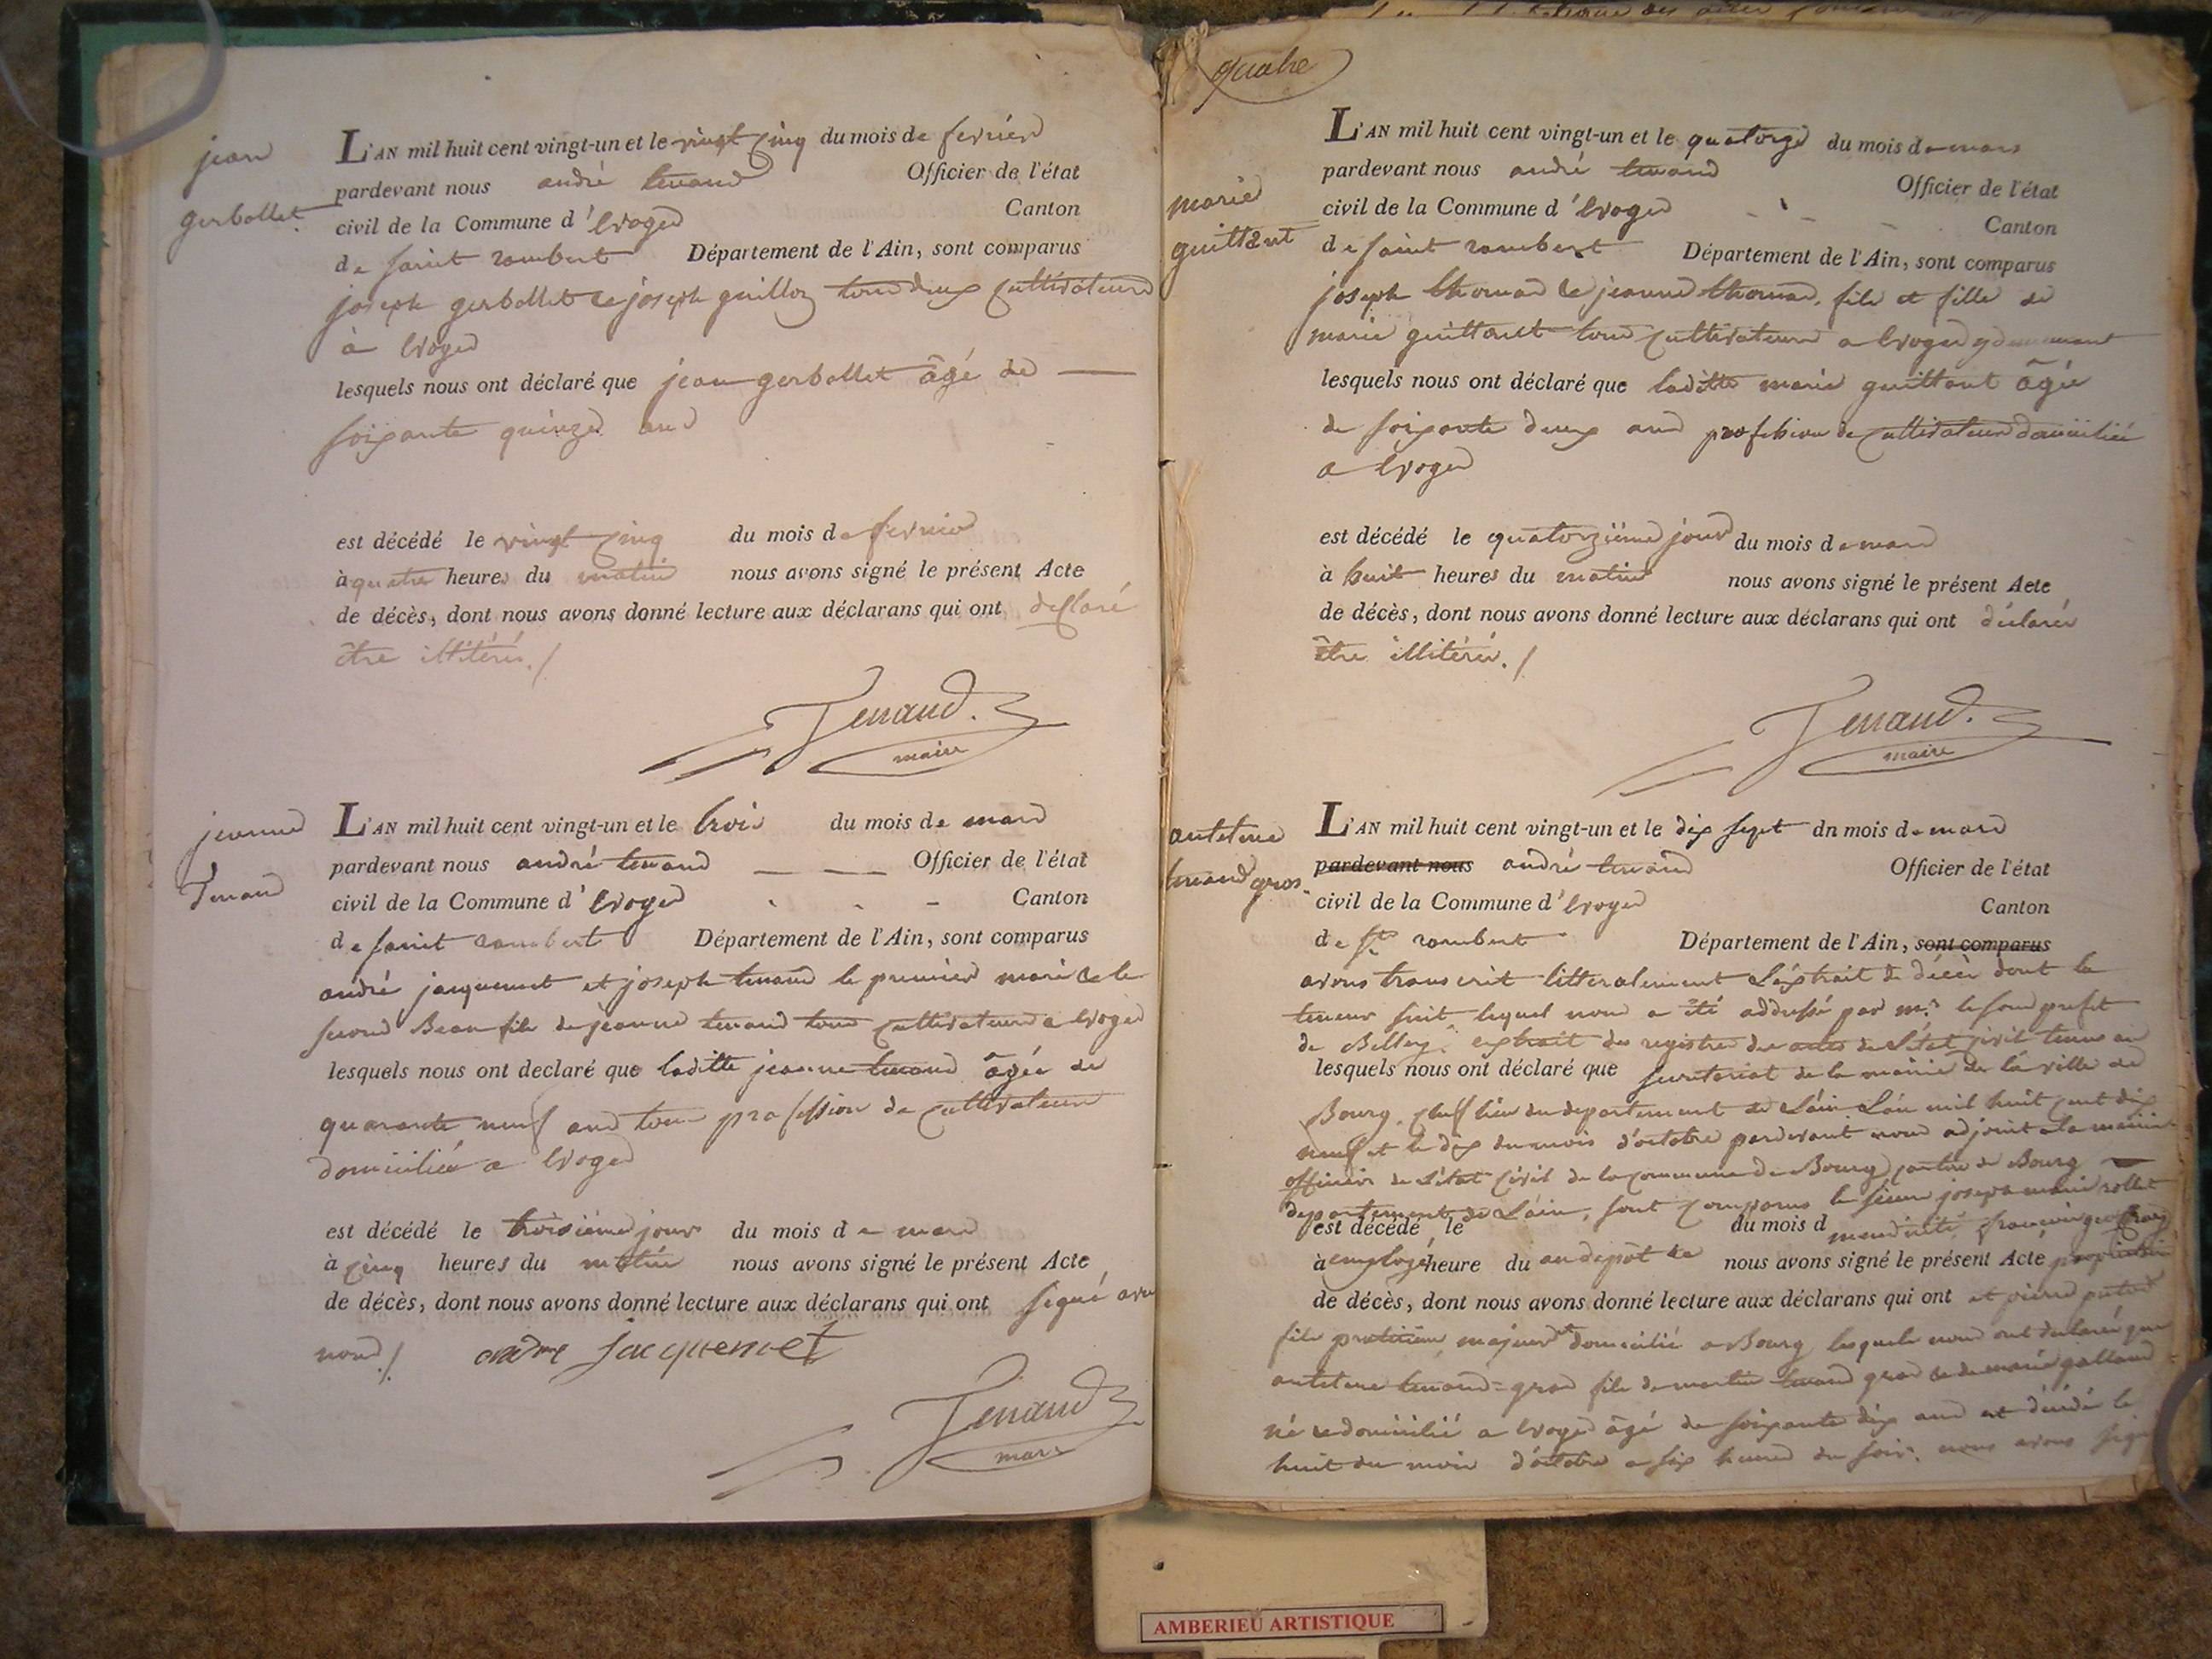 jean
gerbollet
L'AN mil huit cent vingt-un et le vingt cinq du mois de fevrier
pardevant nous andré tenand Officier de l'état
civil de la Commune d'Evoges Canton
de saint rambert Département de l'Ain, sont comparus
joseph gerbollet & joseph guilloz tous deux cultivateurs
à Evoges
lesquels nous ont déclaré que jean gerbollet âgé de
soixante quinze ans
est décédé le vingt cinq du mois de fevrier
à quatre heures du matin nous avons signé le présent Acte
de décès, dont nous avons donné lecture aux déclarans qui ont déclaré
être illitérés./
Tenand.
maire
jeanne
Tenand
L'AN mil huit cent vingt-un et le trois du mois de mars
pardevant nous andré tenand Officier de l'état
civil de la Commune d'Evoges Canton
de saint rambert Département de l'Ain, sont comparus
andré jacquemet et joseph tenand le premier mari & le
second Beau fils de jeanne tenand tous cultivateurs a Evoges
lesquels nous ont declaré que laditte jeanne tenand âgée de
quarante neuf ans profession de cultivateurs
domiciliée a Evoges
est décédé le troisième jour du mois de mars
à cinq heures du matin nous avons signé le présent Acte
de décès, dont nous avons donné lecture aux déclarans qui ont signé avec
nous./ andre jacquemet
Tenand
maire
quatre
marie
guittant
L'AN mil huit cent vingt-un et le quatorze du mois de mars
pardevant nous andré tenand Officier de l'état
civil de la Commune d'Evoges Canton
de saint rambert Département de l'Ain, sont comparus
joseph thomas & jeanne thomas, fils et fille de
marie guittant tous cultivateurs a Evoges y demeurant
lesquels nous ont déclaré que laditte marie guittant âgée
de soixante deux ans profession de cultivateurs domiciliée
a Evoges
est décédé le quatorzième jour du mois de mars
à huit heures du matin nous avons signé le présent Acte
de décès, dont nous avons donné lecture aux déclarans qui ont déclarés
être illitérés./
Tenand.
maire
antelme
tenand gros
L'AN mil huit cent vingt-un et le dix sept dn mois de mars
pardevant nous andré tenand Officier de l'état
civil de la Commune d'Evoges Canton
de St rambert Département de l'Ain, sont comparus
avons transcrit litteralement l'extrait de décès dont la
teneur suit lequel nous a été addressé par mr. le sous prefet
de Belley. extrait des registres des actes de l'état civil tenus au
lesquels nous ont déclaré que secretariat de la mairie de la ville de
Bourg, chef lieu du departement de l'ain L'an mil huit cent dix
neuf et le dix du mois d'octobre pardevant nous adjoint a la mairie
officier de l'état civil de la commune de Bourg canton de Bourg
departement de l'ain, sont comparus le sieur joseph marie rollet
est décédé le du mois d mendicité françois
à employé heure du au depôt de nous avons signé le présent Acte
de décès, dont nous avons donné lecture aux déclarans qui ont et pierre
fils praticien, majeurs domicilié a Bourg lesquels nous ont declarés que
antelme tenand=gros fils de martin tenand gros & de marie galland
né & domicilié a Evoges âgé de soixante dix ans est décédé le
huit du mois d'octobre a six heures du soir. nous avons signé
AMBERIEU ARTISTIQUE